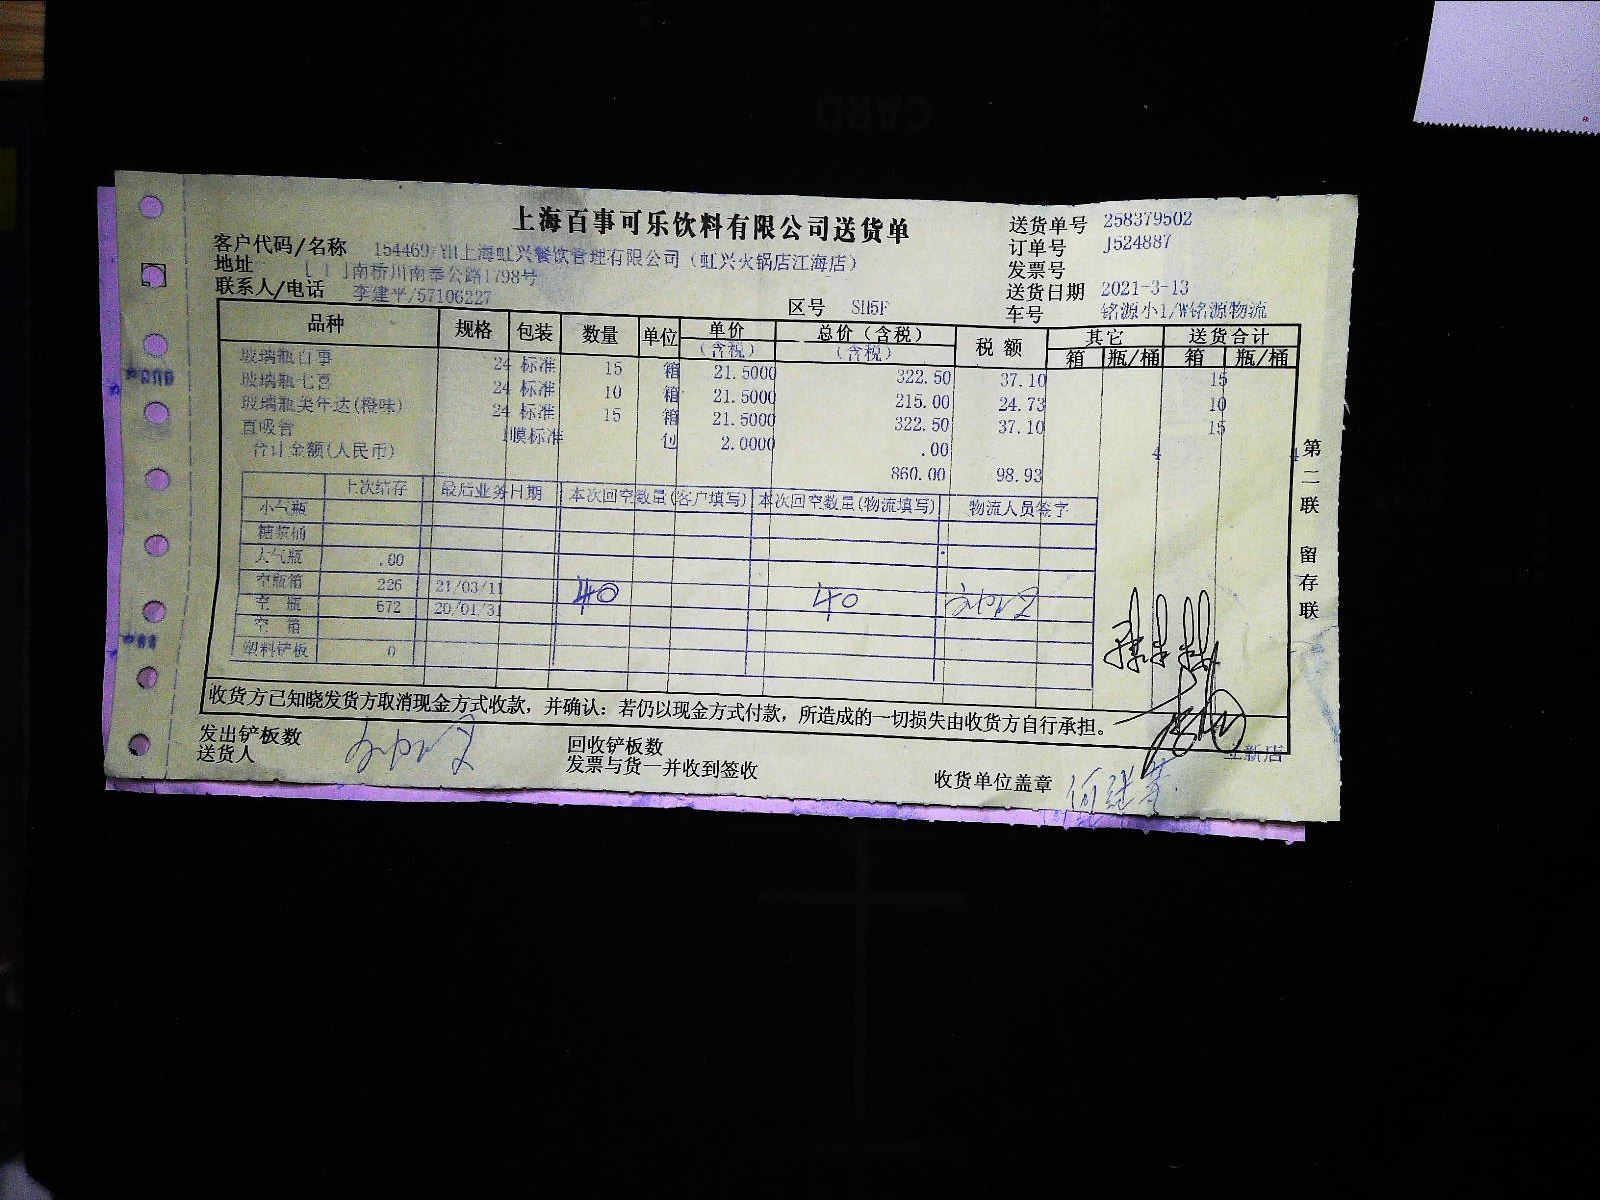 CARD
上海百事可乐饮料有限公司送货单
送货单号 258379502
客户代码/名称 154469/YH上海虹兴餐饮管理有限公司（虹兴火锅店江海店）
订单号 J524887
地址 [ ] ]南桥川南奉公路1798号
发票号
联系人/电话 李建平/57106227
送货日期 2021-3-13
区号 SH5F
车号 铭源小1/W铭源物流
品种 规格 包装 数量 单位 单价（含税） 总价（含税）（含税） 税额 其它 送货合计
箱 瓶/桶 箱 瓶/桶
玻璃瓶百事 24 标准 15 箱 21.5000 322.50 37.10 15
玻璃瓶七喜 24 标准 10 箱 21.5000 215.00 24.73 10
玻璃瓶美年达(橙味) 24 标准 15 箱 21.5000 322.50 37.10 15
直吸管 1膜标准 包 2.0000 .00 4 4
合计金额(人民币) 860.00 98.93
上次结存 最后业务日期 本次回空数量(客户填写) 本次回空数量(物流填写) 物流人员签字
小气瓶
糖浆桶
大气瓶 .00
空瓶箱 226 21/03/11 40 40
空 瓶 672 20/01/31
空 箱
塑料铲板 0
收货方已知晓发货方取消现金方式收款，并确认：若仍以现金方式付款，所造成的一切损失由收货方自行承担。
发出铲板数 回收铲板数
送货人 发票与货一并收到签收 收货单位盖章
第二联 留存联